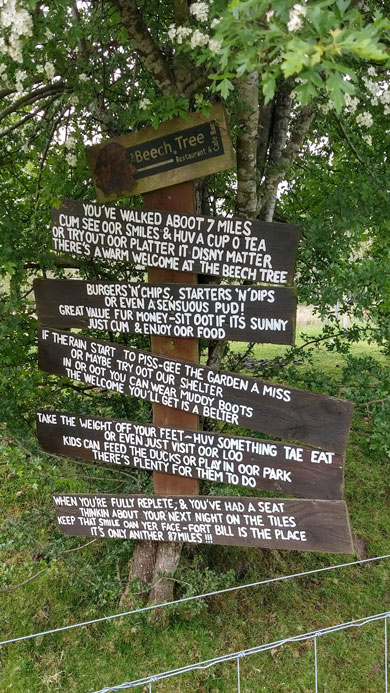 Beech Tree
Restaurant & Cafe Bar
YOU'VE WALKED ABOOT 7 MILES
CUM SEE OOR SMILES & HUV A CUP O TEA
OR TRY OUT OOR PLATTER IT DISNY MATTER
THERE'S A WARM WELCOME AT THE BEECH TREE
BURGERS 'N' CHIPS, STARTERS 'N' DIPS
OR EVEN A SENSUOUS PUD!
GREAT VALUE FUR MONEY-SIT OOT IF IT'S SUNNY
JUST CUM & ENJOY OOR FOOD
IF THE RAIN START TO PISS-GEE THE GARDEN A MISS
OR MAYBE TRY OOT OUR SHELTER
IN OR OOT YOU CAN WEAR MUDDY BOOTS
THE WELCOME YOU'LL GET IS A BELTER
TAKE THE WEIGHT OFF YOUR FEET~HUV SOMETHING TAE EAT
OR EVEN JUST VISIT OOR LOO
KIDS CAN FEED THE DUCKS OR PLAY IN OOR PARK
THERE'S PLENTY FOR THEM TO DO
WHEN YOU'RE FULLY REPLETE, & YOU'VE HAD A SEAT
THINKIN ABOUT YOUR NEXT NIGHT ON THE TILES
KEEP THAT SMILE OAN YER FACE-FORT BILL IS THE PLACE
IT'S ONLY ANITHER 87 MILES!!!